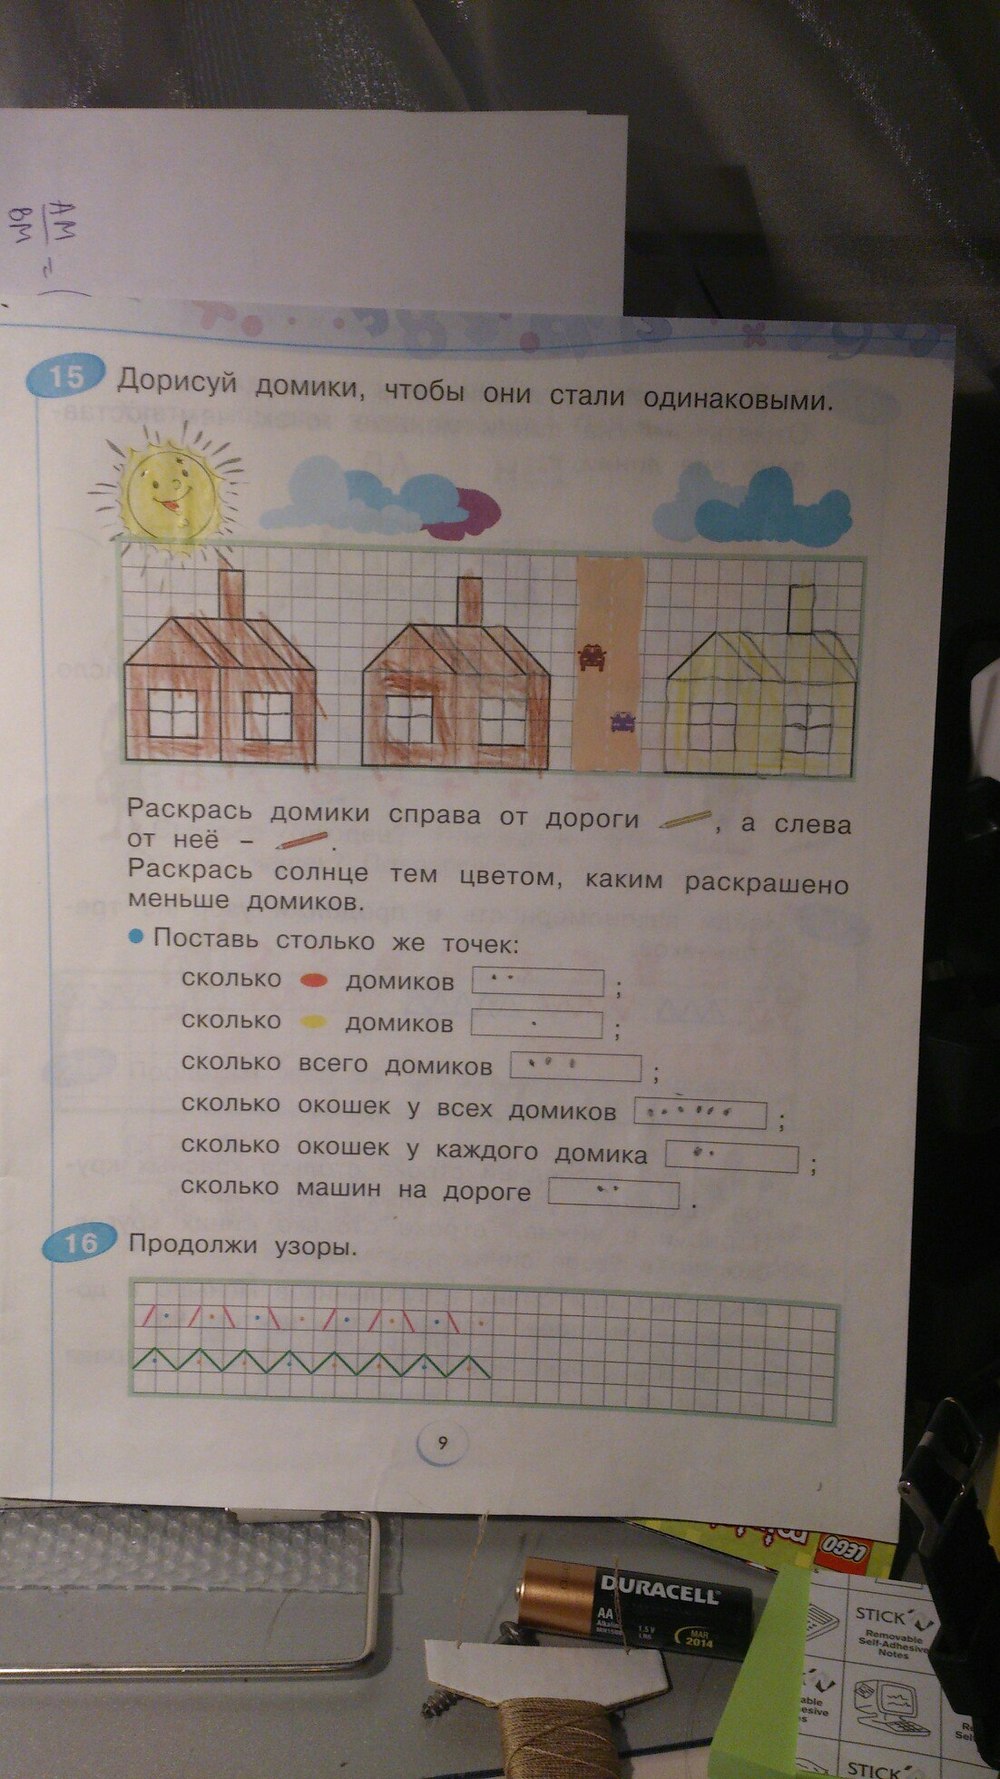 AM
BM
=
15 Дорисуй домики, чтобы они стали одинаковыми.
Раскрась домики справа от дороги , а слева
от неё – .
Раскрась солнце тем цветом, каким раскрашено
меньше домиков.
Поставь столько же точек:
сколько домиков ;
сколько домиков ;
сколько всего домиков ;
сколько окошек у всех домиков ;
сколько окошек у каждого домика ;
сколько машин на дороге .
16 Продолжи узоры.
9
LEGO
DURACELL
AA
1.5 V
MAR
2014
STICK'N
Removable
Self-Adhesive
Notes
STICK